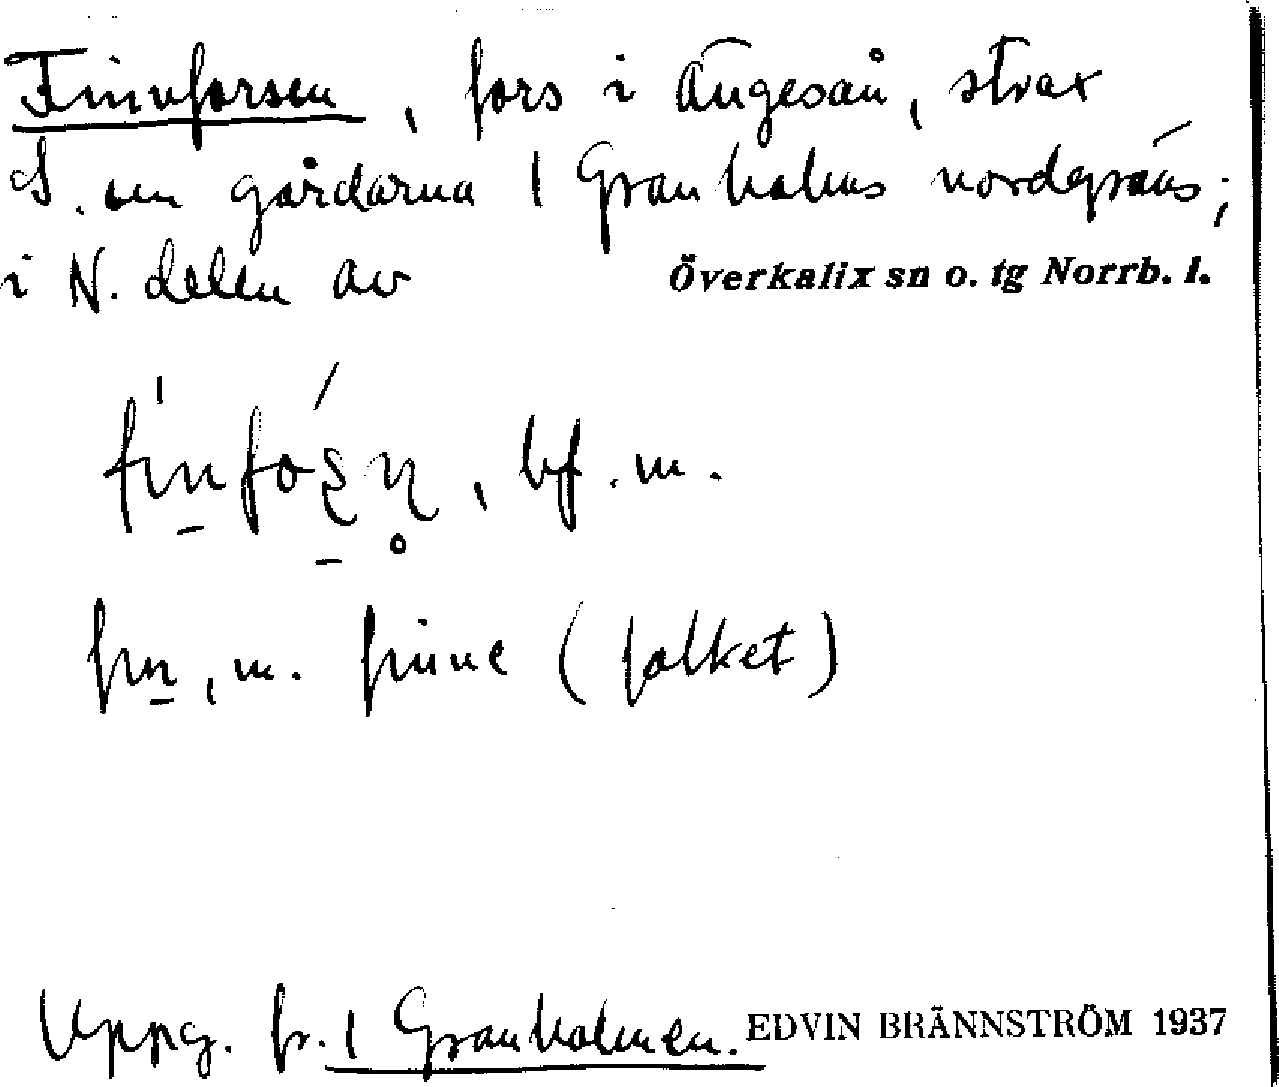 Finnforsen, fors i Ängesån, strax
S. om gårdarna 1 Granholms nordgräns;
i N. delen av Överkalix sn o. tg Norrb. l.
bf. m.
m. finne (folket)
Uppg. fr. 1 Granholmen. EDVIN BRÄNNSTRÖM 1937